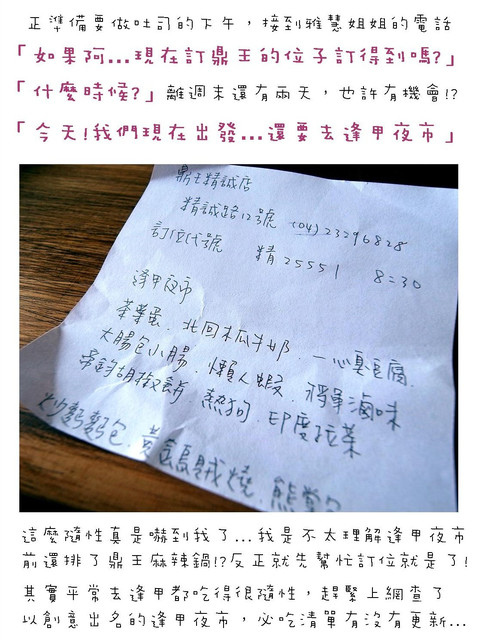 正準備要做吐司的下午，接到雅慧姐姐的電話
「如果阿...現在訂鼎王的位子訂得到嗎?」
「什麼時候?」離週末還有兩天，也許有機會!?
「今天!我們現在出發...還要去逢甲夜市」
鼎王精誠店
精誠路12號 (04)23296828
訂位代號 精25551 8:30
逢甲夜市
茶葉蛋．北回木瓜牛奶．一心臭豆腐．
大腸包小腸．懶人蝦．將軍滷味
帝鈞胡椒餅 熱狗．印度拉茶
炒麵麵包．黃金烏賊燒．熊掌
這麼隨性真是嚇到我了...我是不太理解逢甲夜市
前還排了鼎王麻辣鍋!?反正就先幫忙訂位就是了!
其實平常去逢甲都吃得很隨性，趕緊上網查了
以創意出名的逢甲夜市，必吃清單有沒有更新...